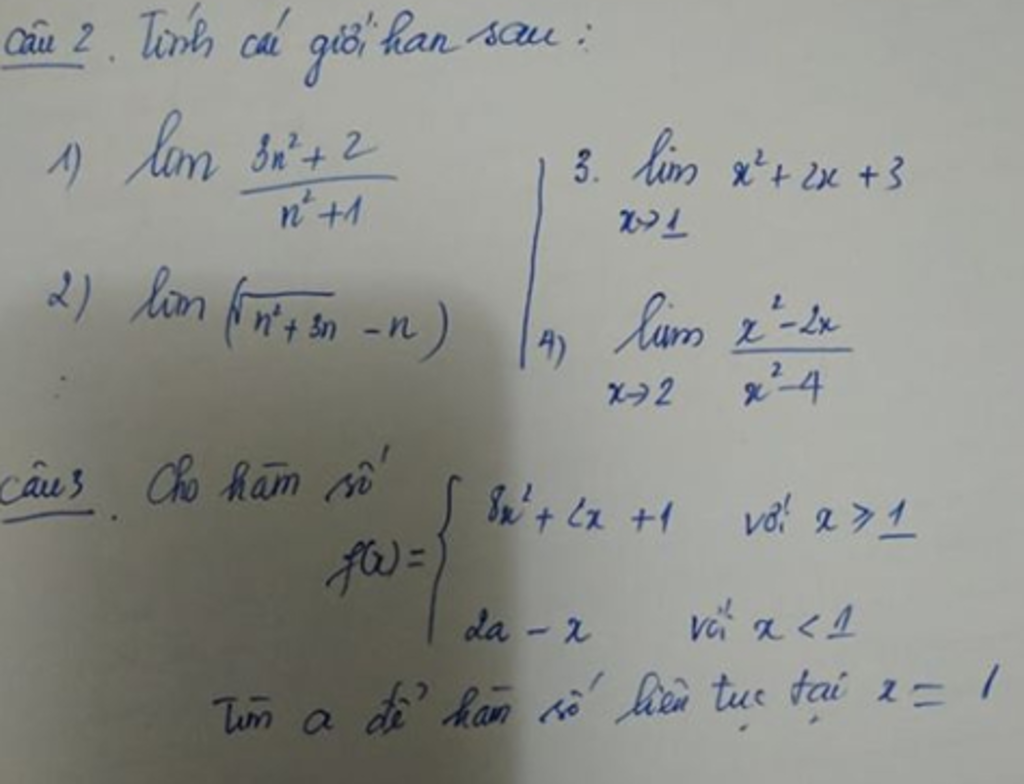 Câu 2. Tính các giới hạn sau:
1) lim (3n² + 2)/(n² + 1)
2) lim (√(n² + 3n) - n)
3. lim x→1 x² + 2x + 3
4) lim x→2 (x² - 2x)/(x² - 4)
Câu 3. Cho hàm số
f(x) = { 8x² + 2x + 1 với x ≥ 1
2a - x với x < 1
Tìm a để hàm số liên tục tại x = 1